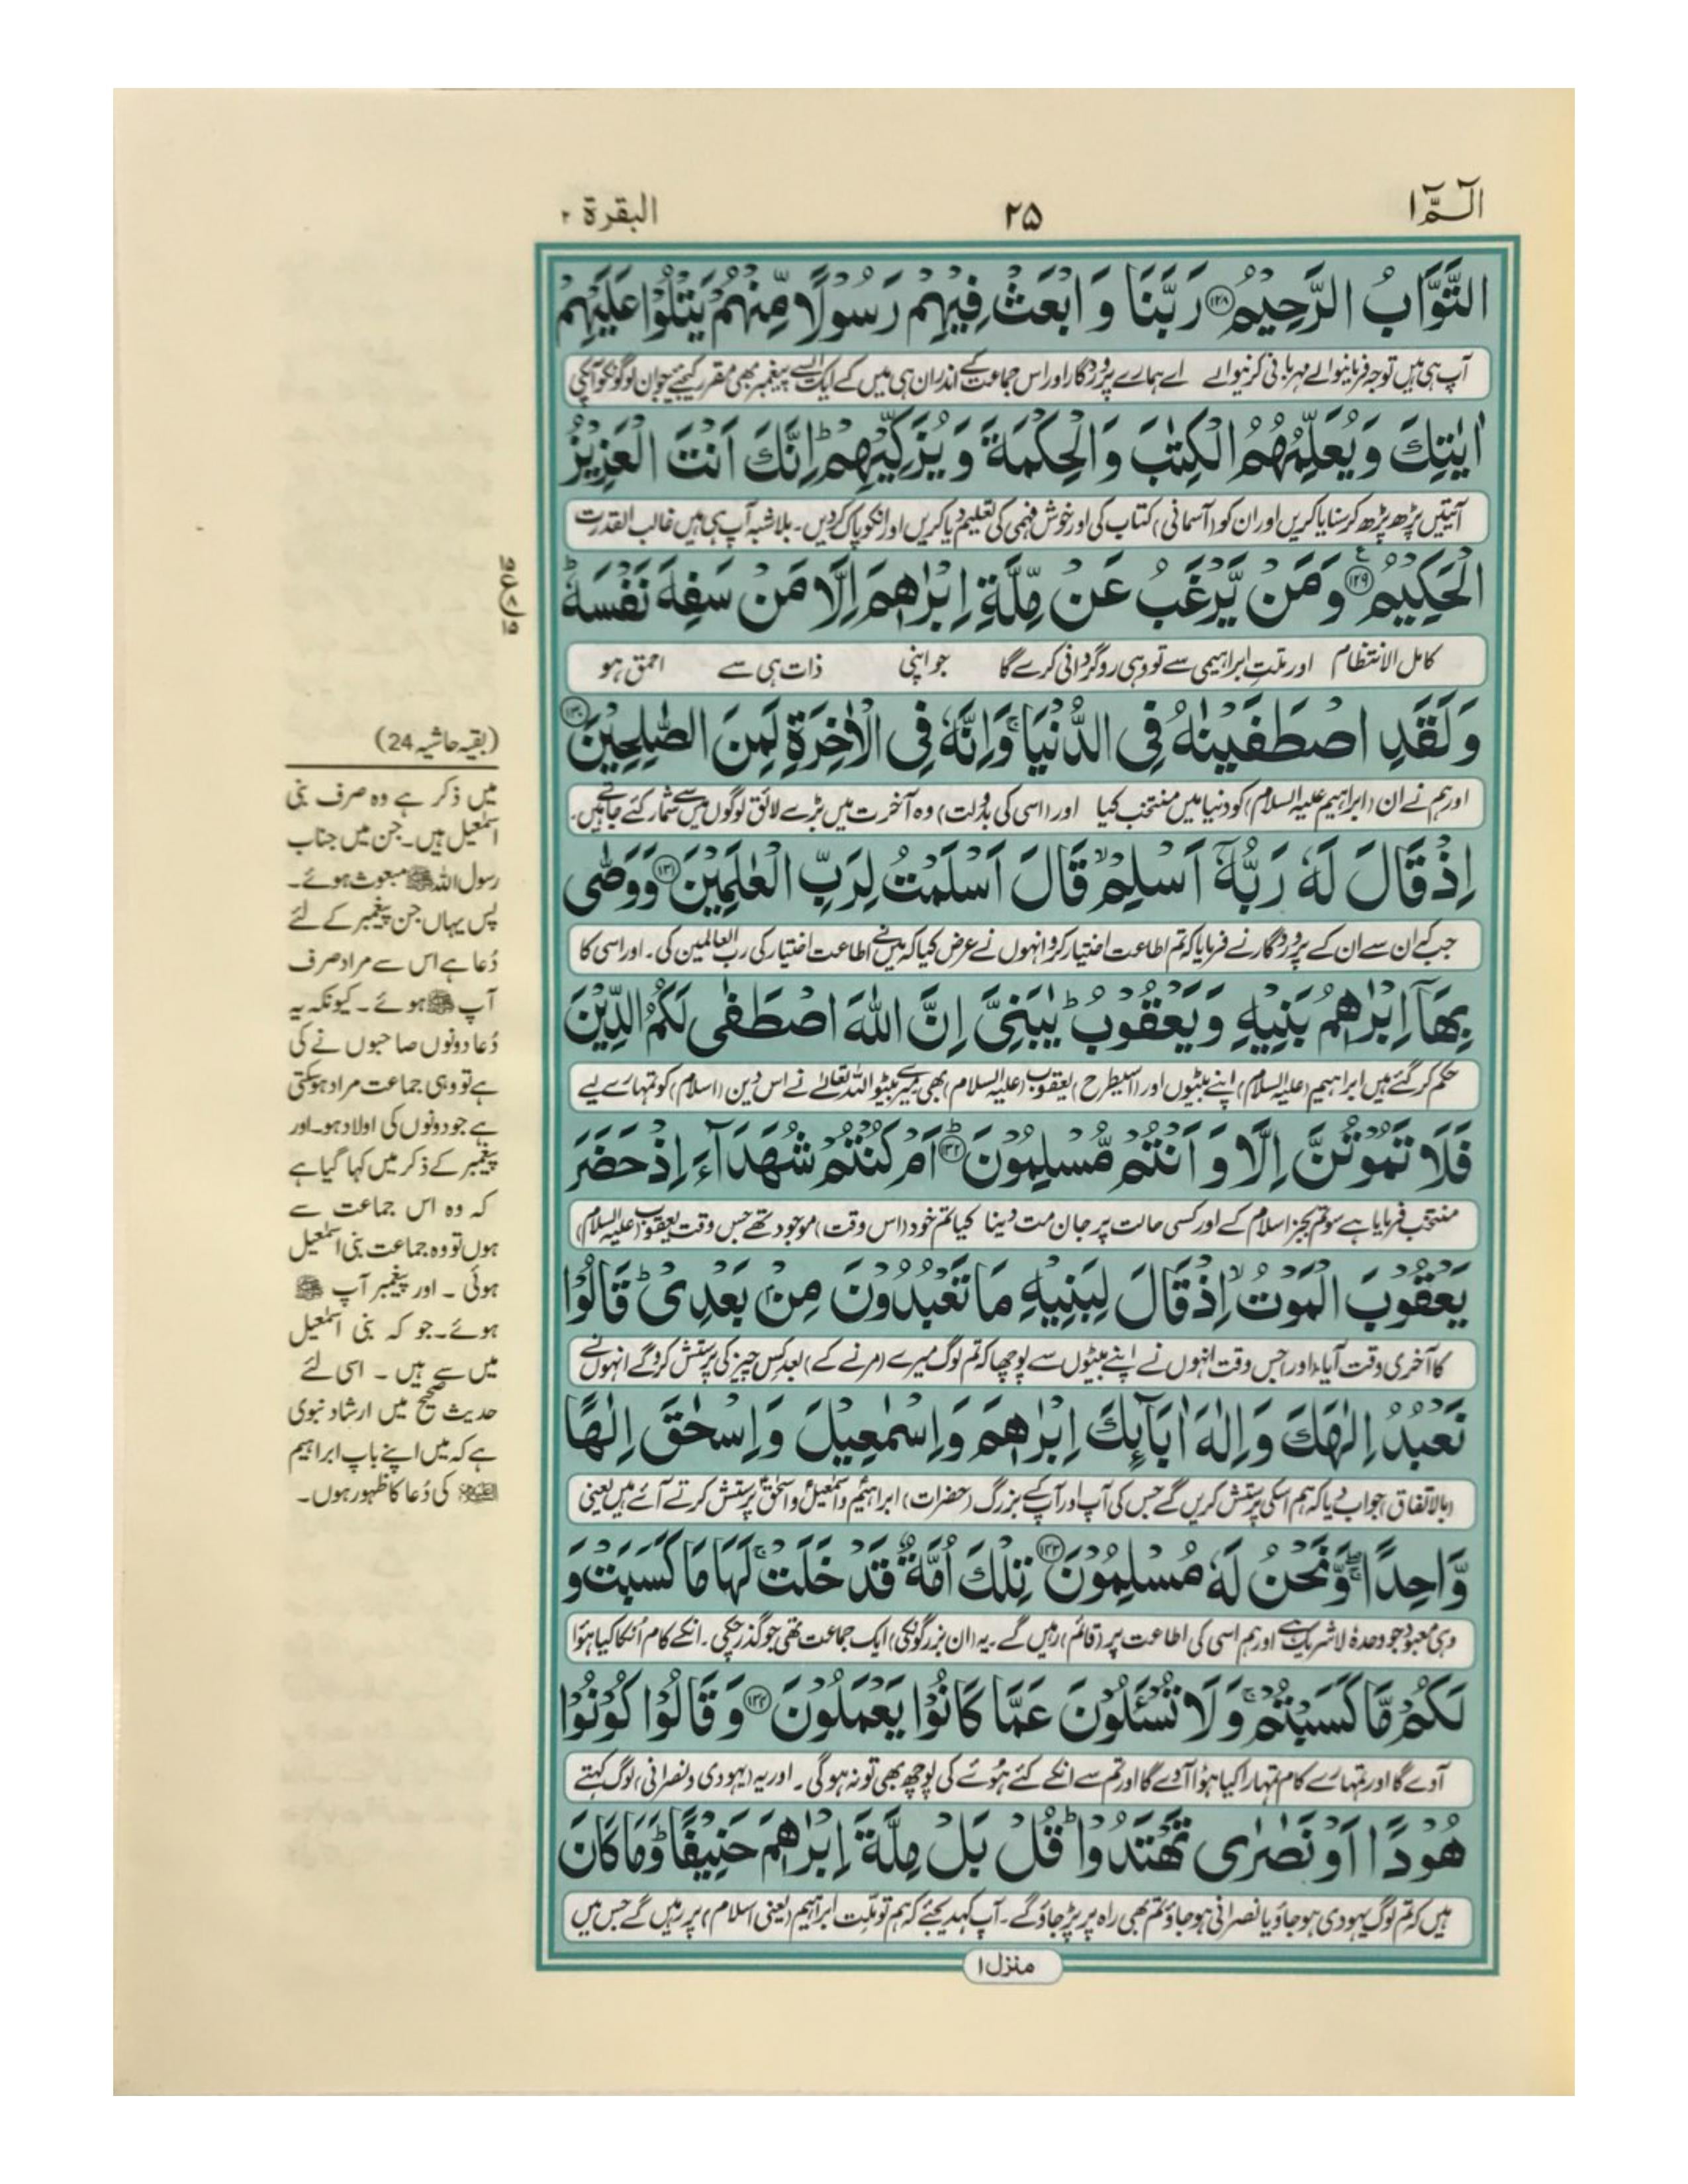 الٓمّٓ ١
٢٥
البقرة ٢
التَّوَّابُ الرَّحِيْمُ ﴿١٢٨﴾ رَبَّنَا وَ ابْعَثْ فِيْهِمْ رَسُوْلًا مِّنْهُمْ يَتْلُوْا عَلَيْهِمْ
آپ ہی ہیں توجہ فرمانیوالے مہربانی کرنیوالے اے ہمارے پروردگار اور اس جماعت کے اندر ان ہی میں کے ایک ایسے پیغمبر بھی مقرر کیجئے جو ان لوگونکو آپکی
اٰيٰتِكَ وَ يُعَلِّمُهُمُ الْكِتٰبَ وَ الْحِكْمَةَ وَ يُزَكِّيْهِمْ ؕ اِنَّكَ اَنْتَ الْعَزِيْزُ
آیتیں پڑھ پڑھ کر سنایا کریں اور ان کو (آسمانی) کتاب کی اور خوش فہمی کی تعلیم دیا کریں اور انکو پاک کر دیں۔ بلاشبہ آپ ہی ہیں غالب القدرت
الْحَكِيْمُ ﴿١٢٩﴾ وَ مَنْ يَّرْغَبُ عَنْ مِّلَّةِ اِبْرٰهٖمَ اِلَّا مَنْ سَفِهَ نَفْسَهٗ ؕ
کامل الانتظام اور ملت ابراہیمی سے تو وہی روگردانی کرے گا جو اپنی ذات ہی سے احمق ہو
وَ لَقَدِ اصْطَفَيْنٰهُ فِي الدُّنْيَا ۚ وَ اِنَّهٗ فِي الْاٰخِرَةِ لَمِنَ الصّٰلِحِيْنَ ﴿١٣٠﴾
اور ہم نے ان (ابراہیم علیہ السلام) کو دنیا میں منتخب کیا اور (اسی کی بدولت) وہ آخرت میں بڑے لائق لوگوں میں سے شمار کئے جاتے ہیں۔
اِذْ قَالَ لَهٗ رَبُّهٗۤ اَسْلِمْ ۙ قَالَ اَسْلَمْتُ لِرَبِّ الْعٰلَمِيْنَ ﴿١٣١﴾ وَ وَصّٰى
جب کہ ان سے ان کے پروردگار نے فرمایا کہ تم اطاعت اختیار کرو انہوں نے عرض کیا کہ میں نے اطاعت اختیار کی رب العالمین کی۔ اور اسی کا
بِهَاۤ اِبْرٰهٖمُ بَنِيْهِ وَ يَعْقُوْبُ ؕ يٰبَنِيَّ اِنَّ اللّٰهَ اصْطَفٰى لَكُمُ الدِّيْنَ
حکم کر گئے ہیں ابراہیم (علیہ السلام) اپنے بیٹوں اور (اسیطرح) یعقوب (علیہ السلام) بھی میرے بیٹو اللہ تعالےٰ نے اس دین (اسلام) کو تمہارے لیے
فَلَا تَمُوْتُنَّ اِلَّا وَ اَنْتُمْ مُّسْلِمُوْنَ ﴿١٣٢﴾ ؕ اَمْ كُنْتُمْ شُهَدَآءَ اِذْ حَضَرَ
منتخب فرمایا ہے سو تم بجز اسلام کے اور کسی حالت پر جان مت دینا کیا تم خود (اس وقت) موجود تھے جس وقت یعقوب (علیہ السلام)
يَعْقُوْبَ الْمَوْتُ ۙ اِذْ قَالَ لِبَنِيْهِ مَا تَعْبُدُوْنَ مِنْۢ بَعْدِيْ ؕ قَالُوْا
کا آخری وقت آیا (اور) جس وقت انہوں نے اپنے بیٹوں سے پوچھا کہ تم لوگ میرے (مرنے کے) بعد کس چیز کی پرستش کرو گے انہوں نے
نَعْبُدُ اِلٰهَكَ وَ اِلٰهَ اٰبَآئِكَ اِبْرٰهٖمَ وَ اِسْمٰعِيْلَ وَ اِسْحٰقَ اِلٰهًا
(بالاتفاق) جواب دیا کہ ہم اسکی پرستش کریں گے جس کی آپ اور آپ کے بزرگ (حضرات) ابراہیمؑ و اسمٰعیلؑ و اسحٰقؑ پرستش کرتے آئے ہیں یعنی
وَّاحِدًا ۖۚ وَّ نَحْنُ لَهٗ مُسْلِمُوْنَ ﴿١٣٣﴾ تِلْكَ اُمَّةٌ قَدْ خَلَتْ ۚ لَهَا مَا كَسَبَتْ وَ
وہی معبود جو وحدہٗ لاشریک ہے اور ہم اسی کی اطاعت پر (قائم) رہیں گے۔ یہ (ان بزرگونکی) ایک جماعت تھی جو گذر چکی۔ انکے کام اُنکا کیا ہوا
لَكُمْ مَّا كَسَبْتُمْ ۚ وَ لَا تُسْـَٔلُوْنَ عَمَّا كَانُوْا يَعْمَلُوْنَ ﴿١٣٤﴾ وَ قَالُوْا كُوْنُوْا
آوے گا اور تمہارے کام تمہارا کیا ہوا آوے گا اور تم سے انکے کئے ہوئے کی پوچھ بھی تو نہ ہو گی۔ اور یہ (یہودی و نصرانی) لوگ کہتے
هُوْدًا اَوْ نَصٰرٰى تَهْتَدُوْا ؕ قُلْ بَلْ مِلَّةَ اِبْرٰهٖمَ حَنِيْفًا ؕ وَ مَا كَانَ
ہیں کہ تم لوگ یہودی ہو جاؤ یا نصرانی ہو جاؤ تم بھی راہ پر پڑ جاؤ گے۔ آپ کہدیجئے کہ ہم تو ملت ابراہیم (یعنی اسلام) پر رہیں گے جس میں
منزل ١
(بقیہ حاشیہ 24)
میں ذکر ہے وہ صرف بنی
اسمٰعیل ہیں۔ جن میں جناب
رسول اللہ ﷺ مبعوث ہوئے۔
پس یہاں جن پیغمبر کے لئے
دُعا ہے اس سے مراد صرف
آپ ﷺ ہوئے۔ کیونکہ یہ
دُعا دونوں صاحبوں نے کی
ہے تو وہی جماعت مراد ہو سکتی
ہے جو دونوں کی اولاد ہو۔ اور
پیغمبر کے ذکر میں کہا گیا ہے
کہ وہ اس جماعت سے
ہوں تو وہ جماعت بنی اسمٰعیل
ہوئی ۔ اور پیغمبر آپ ﷺ
ہوئے۔ جو کہ بنی اسمٰعیل
میں سے ہیں ۔ اسی لئے
حدیث صحیح میں ارشاد نبوی
ہے کہ میں اپنے باپ ابراہیم
کی دُعا کا ظہور ہوں۔